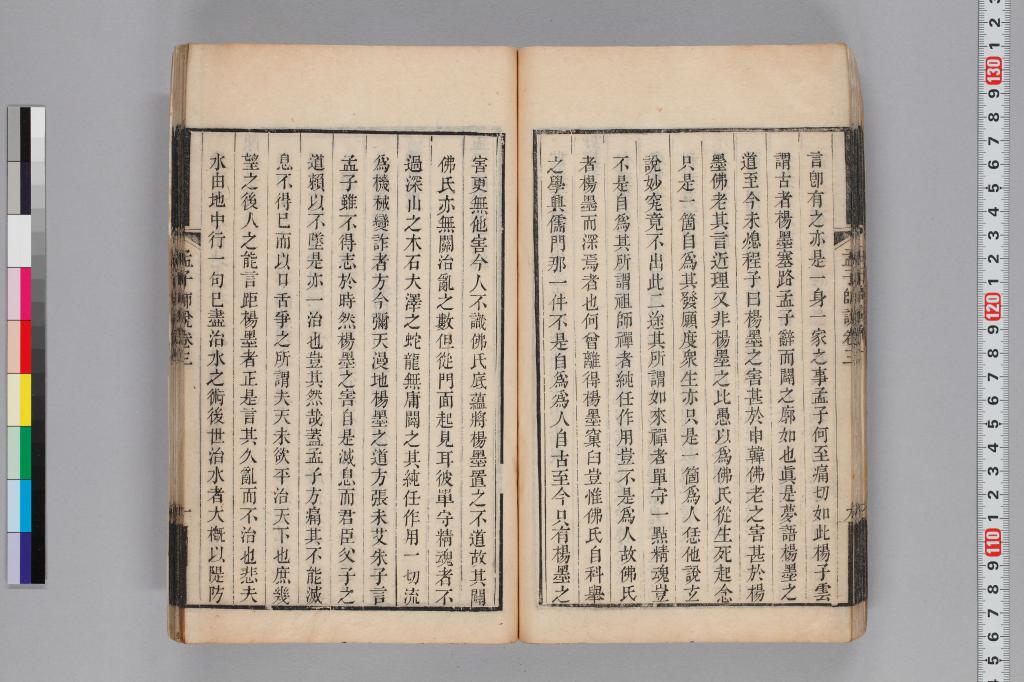 言卽有之亦是一身一家之事孟子何至痛切如此楊子雲
謂古者楊墨塞路孟子辭而闢之廓如也眞是夢語楊墨之
道至今未熄程子曰楊墨之害甚於申韓佛老之害甚於楊
墨佛老其言近理又非楊墨之比愚以爲佛氏從生死起念
只是一箇自爲其發願度衆生亦只是一箇爲人恁他說玄
說妙究竟不出此二途其所謂如來禪者單守一點精魂豈
不是自爲其所謂祖師禪者純任作用豈不是爲人故佛氏
者楊墨而深焉者也何曾離得楊墨窠臼豈惟佛氏自科舉
之學興儒門那一件不是自爲爲人自古至今只有楊墨之
孟子師說卷三
害更無他害今人不識佛氏底蘊將楊墨置之不道故其闢
佛氏亦無關治亂之數但從門面起見耳彼單守精魂者不
過深山之木石大澤之蛇龍無庸闢之其純任作用一切流
爲機械變詐者方今彌天漫地楊墨之道方張未艾朱子言
孟子雖不得志於時然楊墨之害自是滅息而君臣父子之
道賴以不墜是亦一治也豈其然哉蓋孟子方痛其不能滅
息不得已而以口舌爭之所謂夫天未欲平治天下也庶幾
望之後人之能言距楊墨者正是言其久亂而不治也悲夫
水由地中行一句已盡治水之術後世治水者大槪以隄防
孟子師說卷三
130
120
110